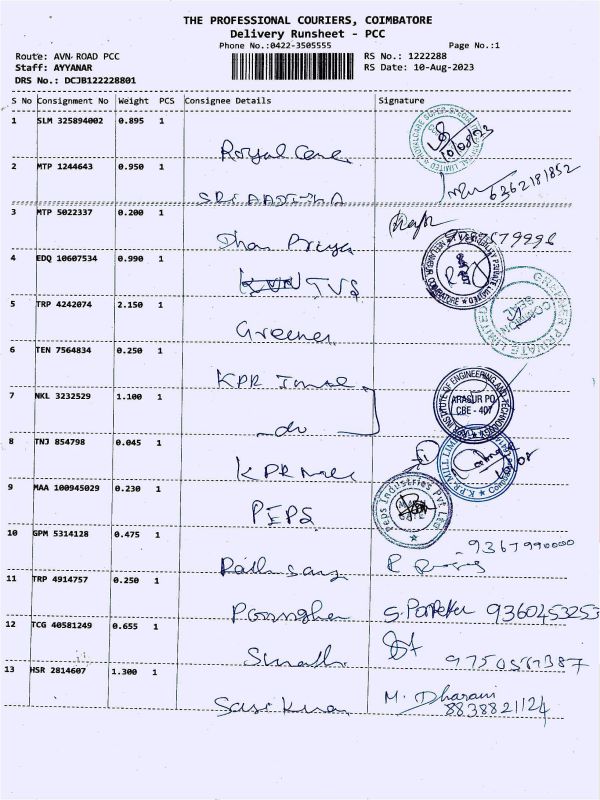 THE PROFESSIONAL COURIERS, COIMBATORE
Delivery Runsheet - PCC
Phone No.:0422-3505555 Page No.:1
Route: AVN ROAD PCC RS No.: 1222288
Staff: AYYANAR RS Date: 10-Aug-2023
DRS No.: DCJB122228801
S No Consignment No Weight PCS Consignee Details Signature
1 SLM 325894002 0.895 1
Royal Care 10/08/23
2 MTP 1244643 0.950 1
6362181852
3 MTP 5022337 0.200 1
Dhan Priya
4 EDQ 10607534 0.990 1
TVS
5 TRP 4242074 2.150 1
Greener COMMON SEAL
6 TEN 7564834 0.250 1
KPR
7 NKL 3232529 1.100 1 ARASUR PO
do CBE - 407
8 TNJ 854798 0.045 1
KPR Mill
9 MAA 100945029 0.230 1 Peps Industries Pvt Ltd
PEPS
10 GPM 5314128 0.475 1
9367990000
11 TRP 4914757 0.250 1
9360453253
12 TCG 40581249 0.655 1
13 HSR 2814607 1.300 1
Sasi Kiran M. Dharani
8838821124